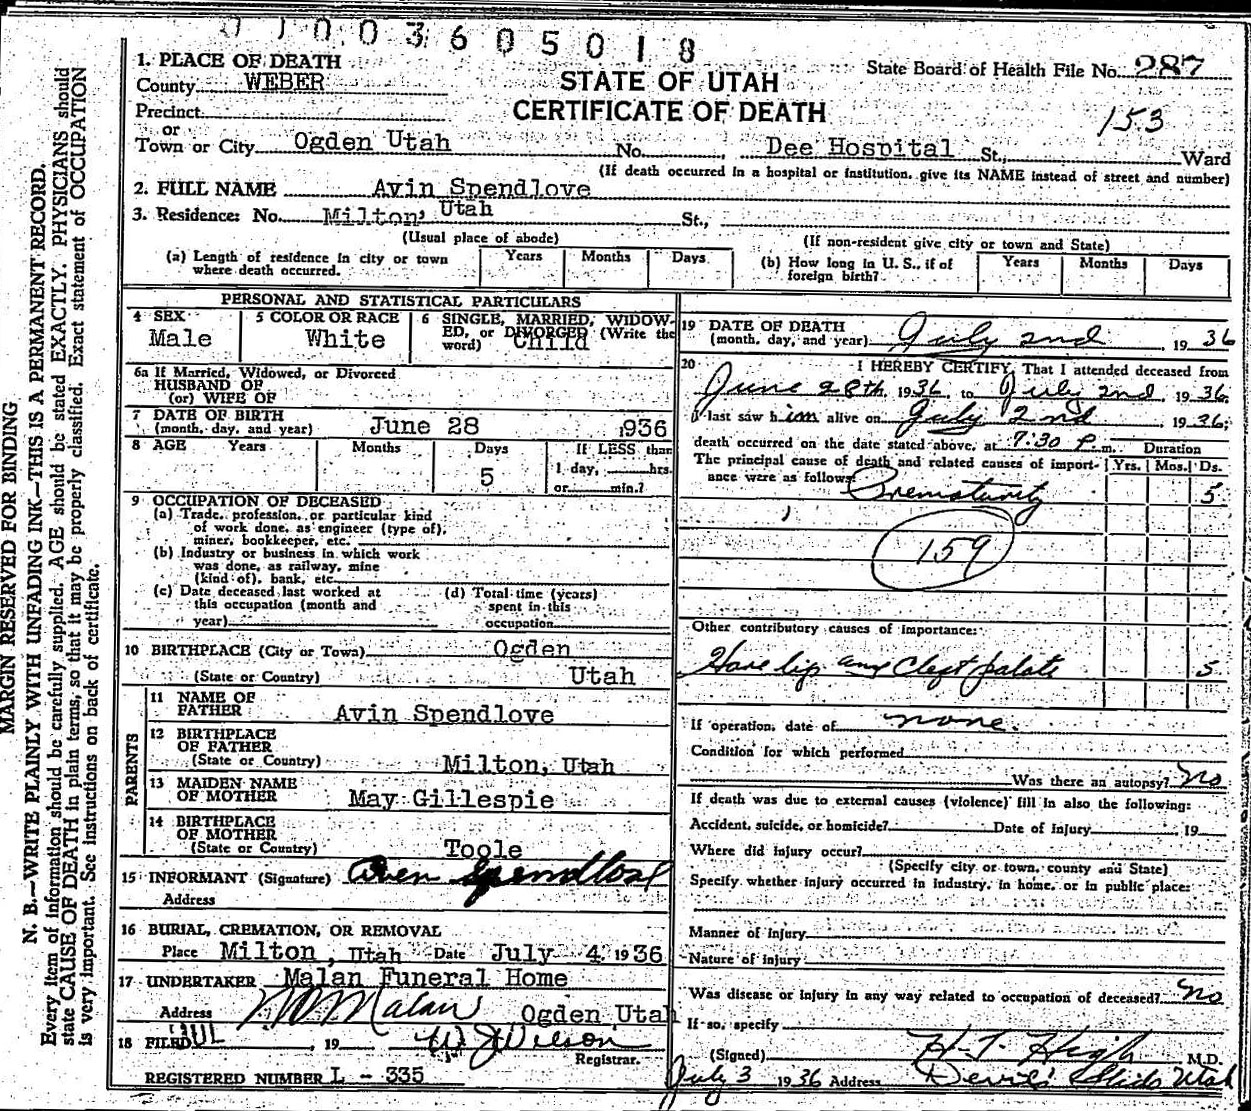 0 1 0 0 3 6 0 5 0 1 8
1. PLACE OF DEATH
County WEBER
STATE OF UTAH
State Board of Health File No. 287
CERTIFICATE OF DEATH
Precinct
153
or
Town or City Ogden Utah No. , Dee Hospital St., Ward
(If death occurred in a hospital or institution, give its NAME instead of street and number)
2. FULL NAME Avin Spendlove
3. Residence: No. Milton, Utah St.,
(Usual place of abode) (If non-resident give city or town and State)
(a) Length of residence in city or town where death occurred. Years Months Days
(b) How long in U. S., if of foreign birth? Years Months Days
PERSONAL AND STATISTICAL PARTICULARS
4 SEX Male
5 COLOR OR RACE White
6 SINGLE, MARRIED, WIDOWED, or DIVORCED (Write the word) Child
6a If Married, Widowed, or Divorced
HUSBAND OF
(or) WIFE OF
7 DATE OF BIRTH
(month, day, and year) June 28 1936
8 AGE Years Months Days If LESS than
5 1 day, hrs.
or min.?
9 OCCUPATION OF DECEASED
(a) Trade, profession, or particular kind
of work done, as engineer (type of),
miner, bookkeeper, etc.
(b) Industry or business in which work
was done, as railway, mine
(kind of), bank, etc.
(c) Date deceased last worked at
this occupation (month and
year)
(d) Total time (years)
spent in this
occupation
10 BIRTHPLACE (City or Town) Ogden
(State or Country) Utah
PARENTS
11 NAME OF
FATHER Avin Spendlove
12 BIRTHPLACE
OF FATHER
(State or Country) Milton, Utah
13 MAIDEN NAME
OF MOTHER May Gillespie
14 BIRTHPLACE
OF MOTHER
(State or Country) Toole
15 INFORMANT (Signature) Aven Spendlove
Address
16 BURIAL, CREMATION, OR REMOVAL
Place Milton, Utah Date July 4, 1936
17 UNDERTAKER Malan Funeral Home
Address Malan Ogden Utah
18 FILED JUL , 19 W J Wilson
Registrar.
REGISTERED NUMBER L - 335
19 DATE OF DEATH
(month, day, and year) July 2nd , 19 36
20 I HEREBY CERTIFY, That I attended deceased from
June 28th, 1936, to July 2nd, 19 36,
I last saw him alive on July 2nd, 19 36;
death occurred on the date stated above, at 7:30 P. m. Duration
The principal cause of death and related causes of import- Yrs. Mos. Ds.
ance were as follows: Prematurity 5
159
Other contributory causes of importance:
Hare lip and Cleft palate 5
If operation, date of none.
Condition for which performed
Was there an autopsy? No
If death was due to external causes (violence) fill in also the following:
Accident, suicide, or homicide? Date of injury , 19
Where did injury occur?
(Specify city or town, county and State)
Specify whether injury occurred in industry, in home, or in public place:
Manner of Injury
Nature of injury
Was disease or injury in any way related to occupation of deceased? No
If so, specify
(Signed) M.D.
July 3 1936 Address Devil's Slide Utah
MARGIN RESERVED FOR BINDING
N. B.—WRITE PLAINLY WITH UNFADING INK—THIS IS A PERMANENT RECORD.
Every item of information should be carefully supplied. AGE should be stated EXACTLY. PHYSICIANS should
state CAUSE OF DEATH in plain terms, so that it may be properly classified. Exact statement of OCCUPATION
is very important. See instructions on back of certificate.